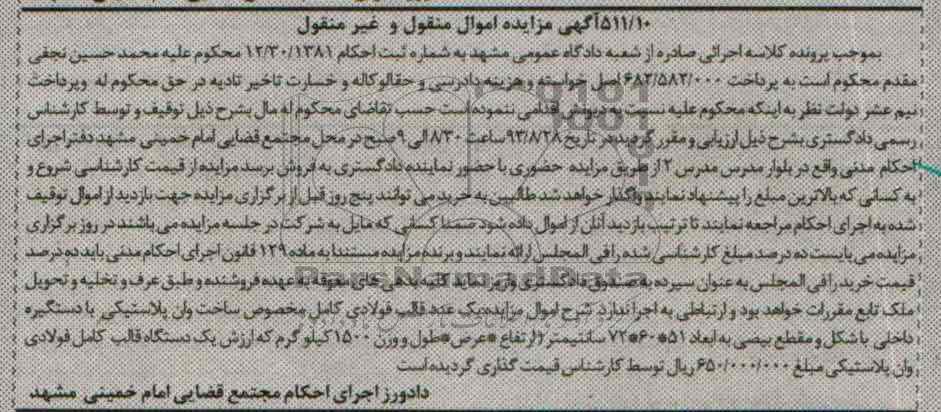 ۵۱۱/۱۰آگهی مزایده اموال منقول و غیر منقول
بموجب پرونده کلاسه اجرائی صادره از شعبه دادگاه عمومی مشهد به شماره ثبت احکام ۱۲/۳۰/۱۳۸۱ محکوم علیه محمد حسین نجفی
مقدم محکوم است به پرداخت ۶۸۲/۵۸۲/۰۰۰اصل خواسته و هزینه دادرسی و حقالوکاله و خسارت تاخیر تادیه در حق محکوم له وپرداخت
نیم عشر دولت نظر به اینکه محکوم علیه نسبت به دیونش اقدامی ننموده است حسب تقاضای محکوم له مال بشرح ذیل توقیف و توسط کارشناس
رسمی دادگستری بشرح ذیل ارزیابی و مقرر گردیده در تاریخ ۹۳/۸/۲۸ساعت ۸/۳۰الی ۹صبح در محل مجتمع قضایی امام خمینی مشهد دفتر اجرای
احکام مدنی واقع در بلوار مدرس مدرس ۲ از طریق مزایده حضوری با حضور نماینده دادگستری به فروش برسد مزایده از قیمت کارشناسی شروع و
به کسانی که بالاترین مبلغ را پیشنهاد نمایند واگذار خواهد شد طالبین به خرید می توانند پنج روز قبل از برگزاری مزایده جهت بازدید از اموال توقیف
شده به اجرای احکام مراجعه نمایند تا ترتیب بازدید آنان از اموال داده شود ضمنا کسانی که مایل به شرکت در جلسه مزایده می باشند در روز برگزاری
مزایده می بایست ده درصد مبلغ کارشناسی شده را فی المجلس ارائه نمایند و برنده مزایده مستندا به ماده ۱۲۹ قانون اجرای احکام مدنی باید ده درصد
قیمت خرید را فی المجلس به عنوان سپرده به صندوق دادگستری واریز نماید کلیه بدهی های معوقه به عهده فروشنده و طبق عرف و تخلیه و تحویل
ملک تابع مقررات خواهد بود و ارتباطی به اجرا ندارد. شرح اموال مزایده:یک عدد قالب فولادی کامل مخصوص ساخت وان پلاستیکی با دستگیره
داخلی با شکل و مقطع بیضی به ابعاد ۵۱*۶۰*۷۲ سانتیمتر (ارتفاع *عرض*طول و وزن ۱۵۰۰ کیلو گرم که ارزش یک دستگاه قالب کامل فولادی
وان پلاستیکی مبلغ ۶۵۰/۰۰۰/۰۰۰ریال توسط کارشناس قیمت گذاری گردیده است
دادورز اجرای احکام مجتمع قضایی امام خمینی مشهد
ParsNamadData